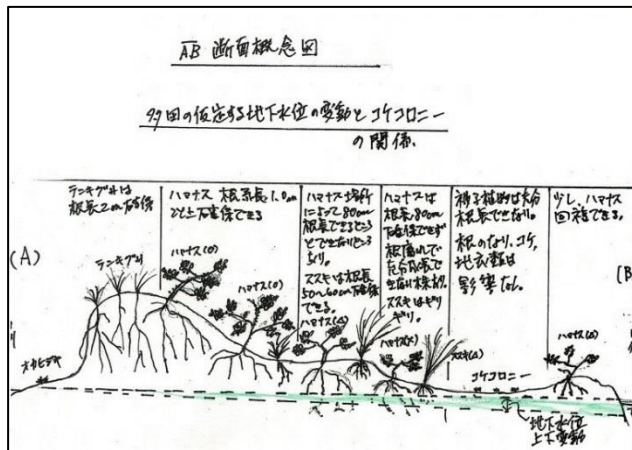 AB 断面概念図
町田の仮定する地下水位の変動とコケコロニー
の関係、
テンキグサは
根長2m確保
ハマナス 根系長1.0m
以上確保できる
ハマナス場所
によって80cm
根長できるところ
とできないところ
あり。
ススキは根長
50~60cm確保
できる。
ハマナスは
根長80cm
確保できず
根腐れで
充分成長で
きない株あり。
ススキはギリ
ギリ。
種子植物は充分
根長できない。
根のない、コケ、
地衣類は
影響なし。
少し、ハマナス
回復できる。
(A)
(B
テンキグサ
ハマナス(O)
ハマナス(O)
ハマナス(△)
ハマナス(×)
ススキ(△)
コケコロニー
ハマナス(△)
オカヒジキ
地下水位
上下変動